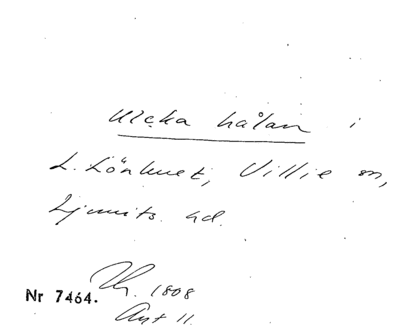 Ulcka hålan i
L. Lönhuet, Villie sn,
Ljunits hd.
Nr 7464. 1808
Art 11